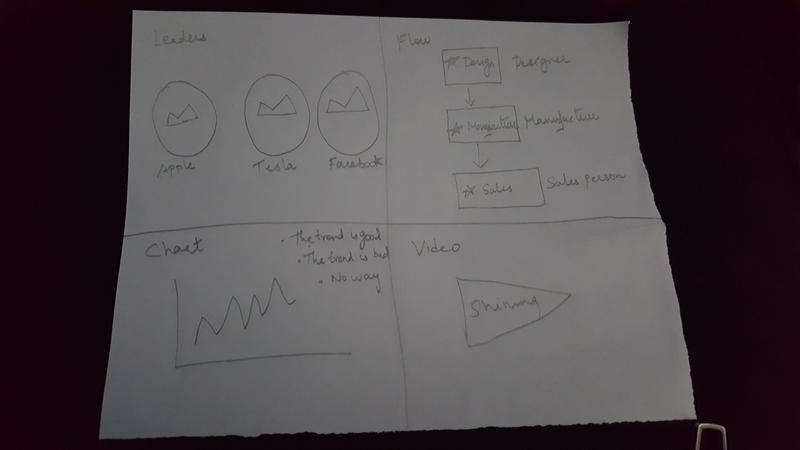 Leaders
Apple
Tesla
Facebook
Flow
Design Designer
Manufacture
Sales Sales person
Chart
• The trend is good
• The trend is bad
• No way
Video
Shining